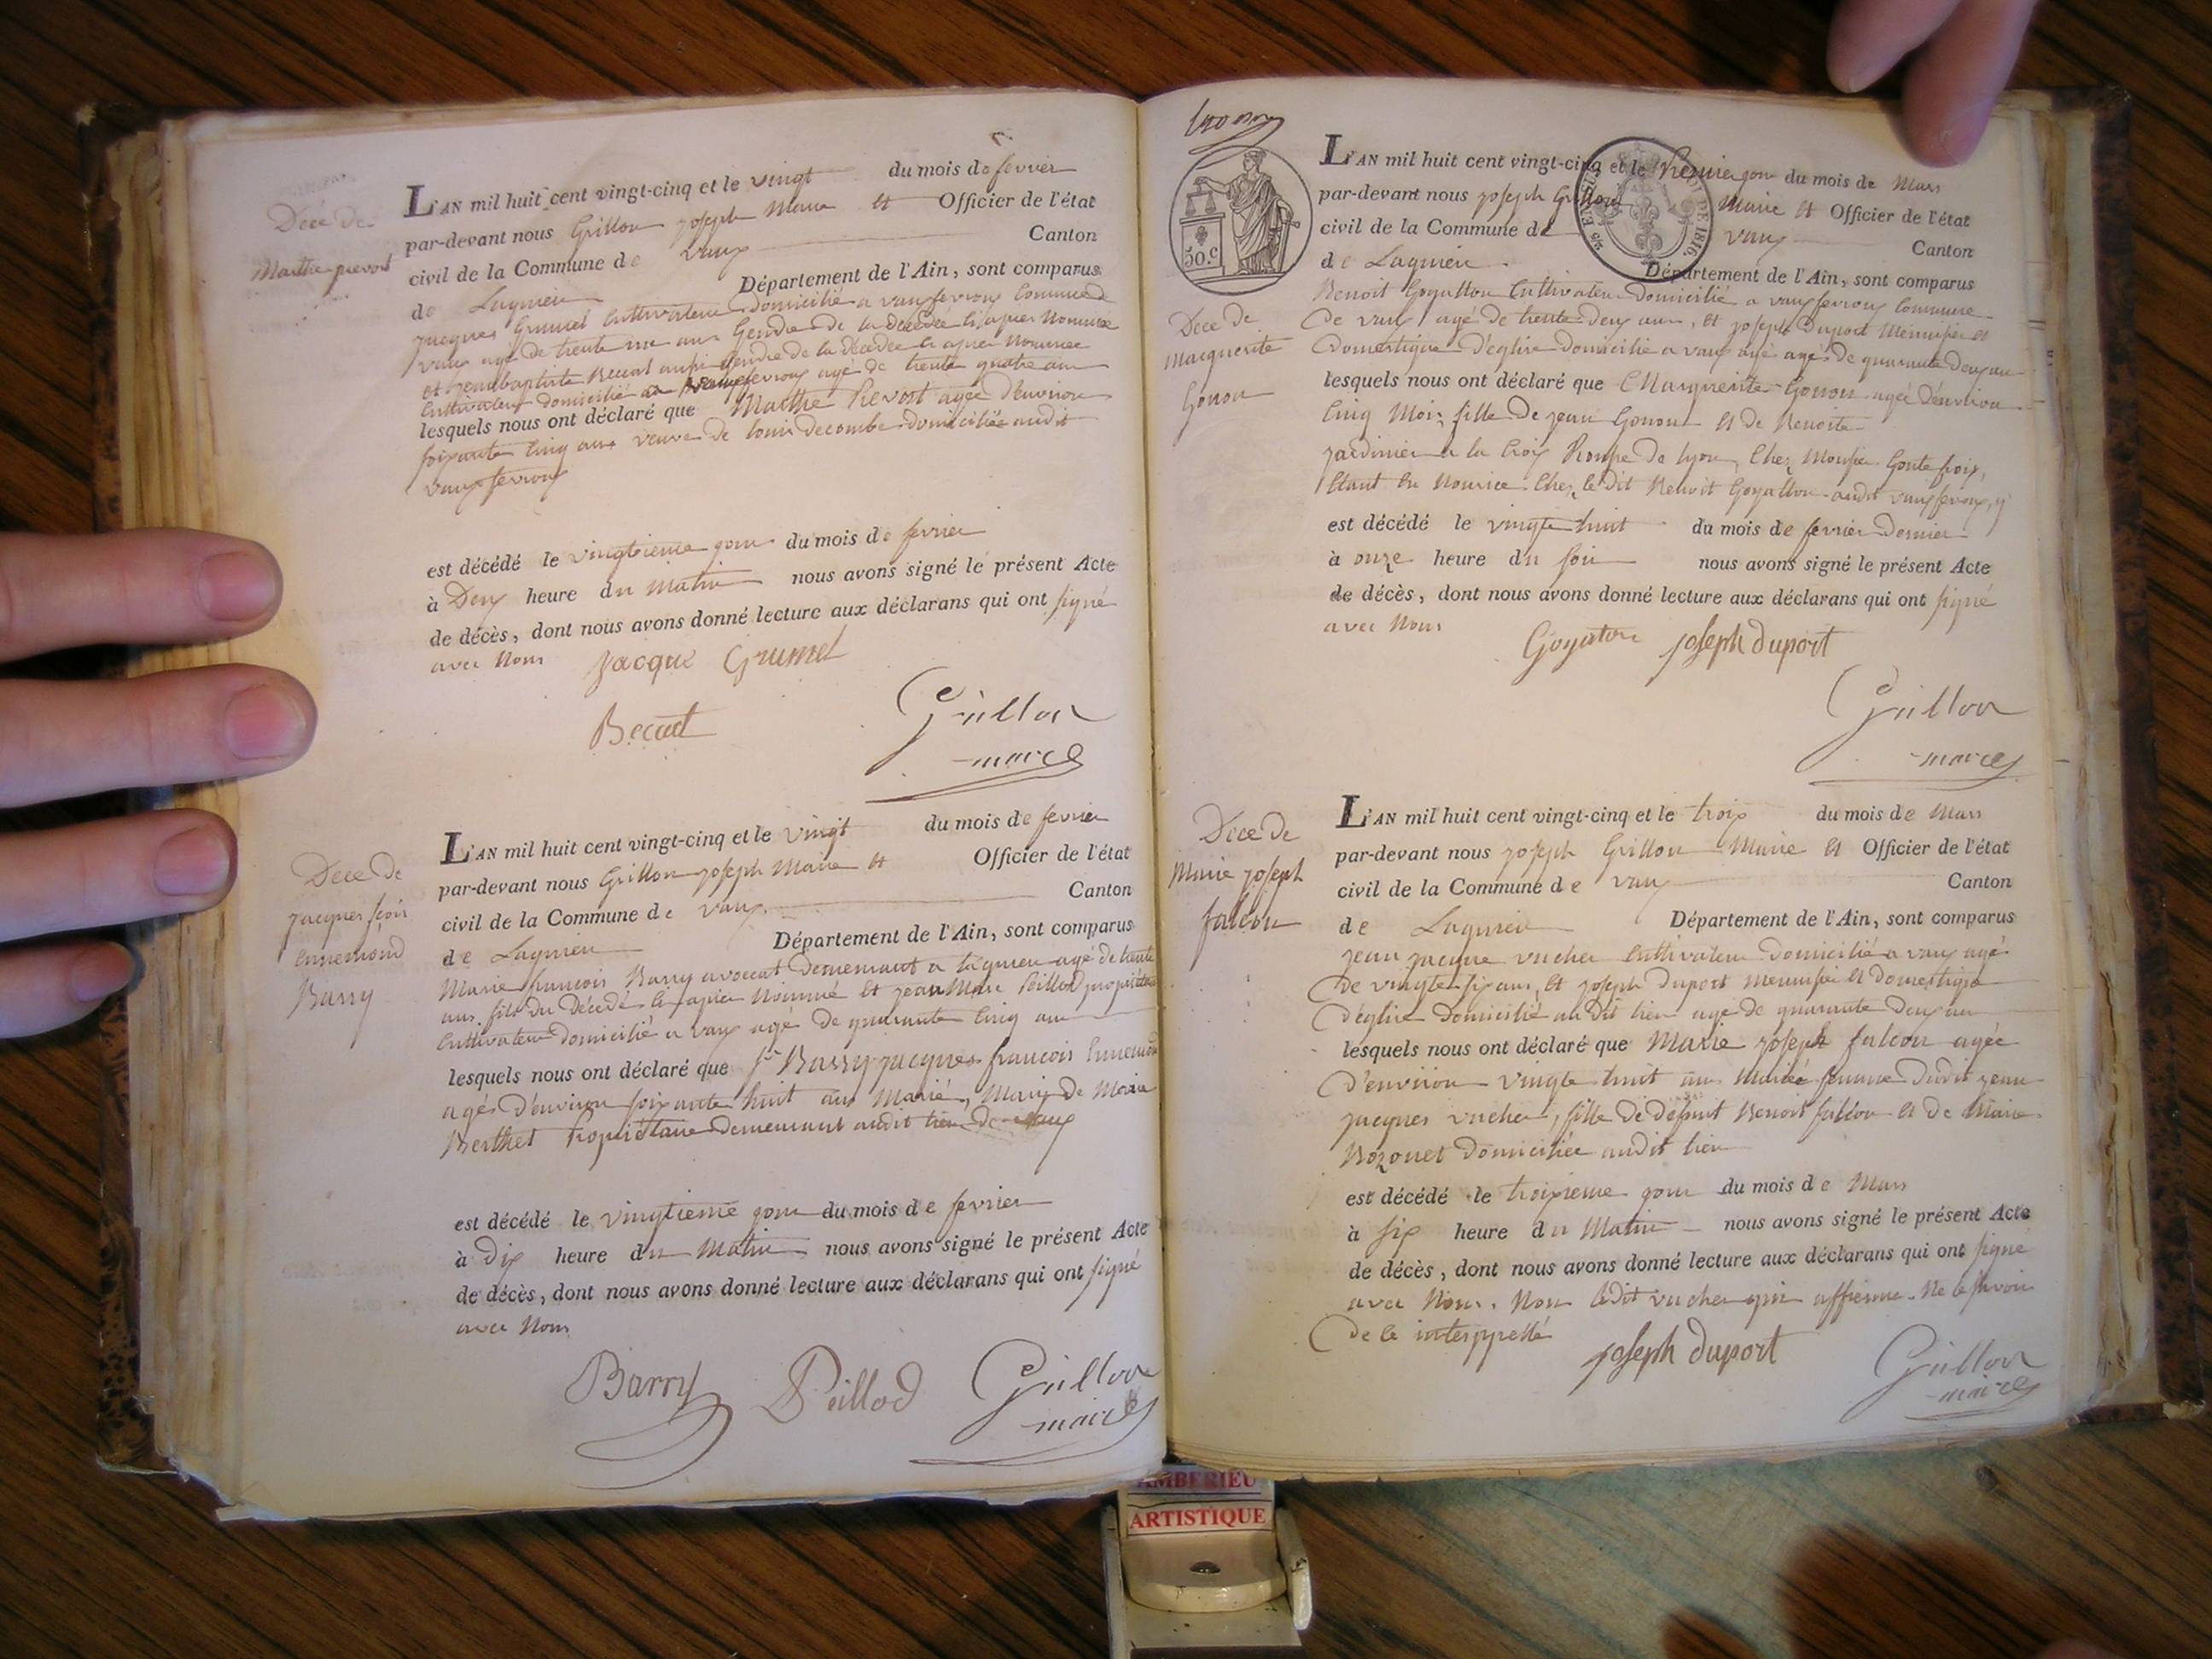 Décé de
Marthe prevost
L'AN mil huit cent vingt-cinq et le vingt du mois de fevrier
par-devant nous Grillon joseph Maire et Officier de l'état
civil de la Commune de vaux Canton
de Lagnieu Département de l'Ain, sont comparus
jacques Grumel Cultivateur domicilié a vauxfevroux Commune de
vaux agé de trente un ans Gendre de la décédée Ci apres Nommée
et jeanbaptiste Becart aussi Gendre de la décédée Ci apres Nommée
Cultivateur domicilié a vauxfevroux agé de trente quatre ans
lesquels nous ont déclaré que Marthe Prevost agée d'environ
soixante Cinq ans veuve de louis decombe domiciliée audit
vauxfevroux
est décédé le vingtieme jour du mois de fevrier
à Deux heure du Matin nous avons signé le présent Acte
de décès, dont nous avons donné lecture aux déclarans qui ont signé
avec Nous jacque Grumel
Becart Grillon
maire
Décé de
jacques fçois
Ennemond
Barry
L'AN mil huit cent vingt-cinq et le vingt du mois de fevrier
par-devant nous Grillon joseph Maire et Officier de l'état
civil de la Commune de vaux Canton
de Lagnieu Département de l'Ain, sont comparus
Marie francois Barry avocat demeurant a lagnieu agé de trente
ans, fils du Décédé Ci apres Nommé et jean Marie Peillod propriétaire
Cultivateur domicilié a vaux agé de quarante Cinq ans
lesquels nous ont déclaré que Sr Barry jacques francois Ennemond
agés d'environ soixante huit ans Marié, Mari de Marie
Berthet Propriétaire demeurant audit lieu de vaux
est décédé le vingtieme jour du mois de fevrier
à Dix heure du Matin nous avons signé le présent Acte
de décès, dont nous avons donné lecture aux déclarans qui ont signé
avec Nous
Barry Peillod Grillon
maire
50.c
DE 1816.
Décé de
Marguerite
Gonon
L'AN mil huit cent vingt-cinq et le Premier jour du mois de Mars
par-devant nous joseph Grillon Maire et Officier de l'état
civil de la Commune de vaux Canton
de Lagnieu Département de l'Ain, sont comparus
Benoit Goyatton Cultivateur Domicilié a vauxfevroux Commune
de vaux agé de trente deux ans, et joseph Duport Menuisier et
Domestique D'eglise Domicilié a vaux agé de quarante deux ans
lesquels nous ont déclaré que Marguerite Gonon agée D'environ
Cinq Mois, fille de jean Gonon et de Benoite
jardinier a la Croix Rousse de lyon, Chez Monsieur
Etant En Nourice Chez le Dit Benoit Goyatton audit vauxfevroux, y
est décédé le vingte huit du mois de fevrier Dernier
à onze heure du soir nous avons signé le présent Acte
de décès, dont nous avons donné lecture aux déclarans qui ont signé
avec Nous Goyaton joseph duport
Grillon
maire
Décé de
Marie joseph
falcon
L'AN mil huit cent vingt-cinq et le trois du mois de Mars
par-devant nous joseph Grillon Maire et Officier de l'état
civil de la Commune de vaux Canton
de Lagnieu Département de l'Ain, sont comparus
jean jacque vucher Cultivateur Domicilié a vaux agé
De vingte six ans, et joseph Duport Menuisié et Domestique
D'église Domicilié au Dit lieu agé de quarante Deux ans
lesquels nous ont déclaré que Marie joseph falcon agée
D'environ vingte huit ans Mariée femme Dudit jean
jacques vucher, fille de défunt Benoit falcon et de Marie
Bozonet Domiciliée audit lieu
est décédé le troixieme jour du mois de Mars
à six heure du Matin nous avons signé le présent Acte
de décès, dont nous avons donné lecture aux déclarans qui ont signé
avec Nous. Non ledit vucher qui affirme Ne le savoir
De ce interppellé joseph duport Grillon
maire
AMBERIEU
ARTISTIQUE